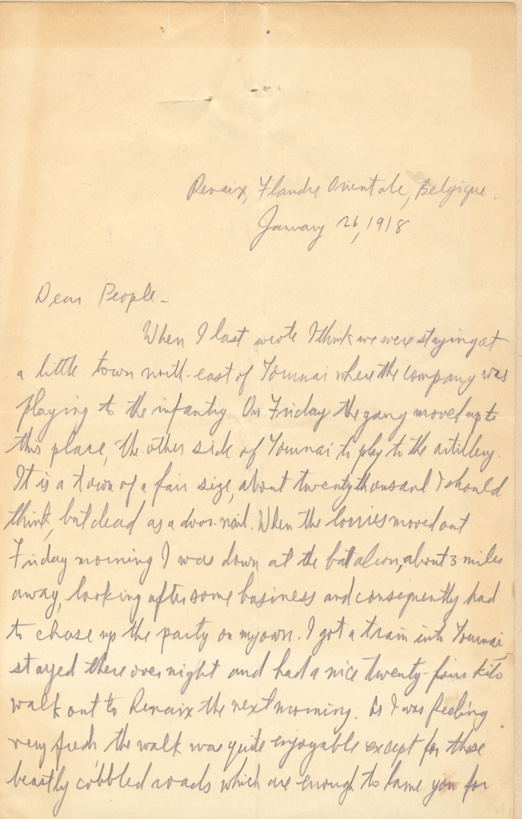 Renaix, Flandre Orientale, Belgique.
January 26, 1918
Dear People -
When I last wrote I think we were staying at
a little town north-east of Tournai where the company was
playing to the infantry. On Friday the gang moved up to
this place, the other side of Tournai to play to the artillery.
It is a town of a fair size, about twenty thousand I should
think, but dead as a door-nail. When the lorries moved out
Friday morning I was down at the battalion, about 3 miles
away, looking after some business and consequently had
to chase up the party on my own. I got a train into Tournai
stayed there over night and had a nice twenty-four kilo
walk out to Renaix the next morning. As I was feeling
very fresh the walk was quite enjoyable except for these
beastly cobbled roads which are enough to lame you for